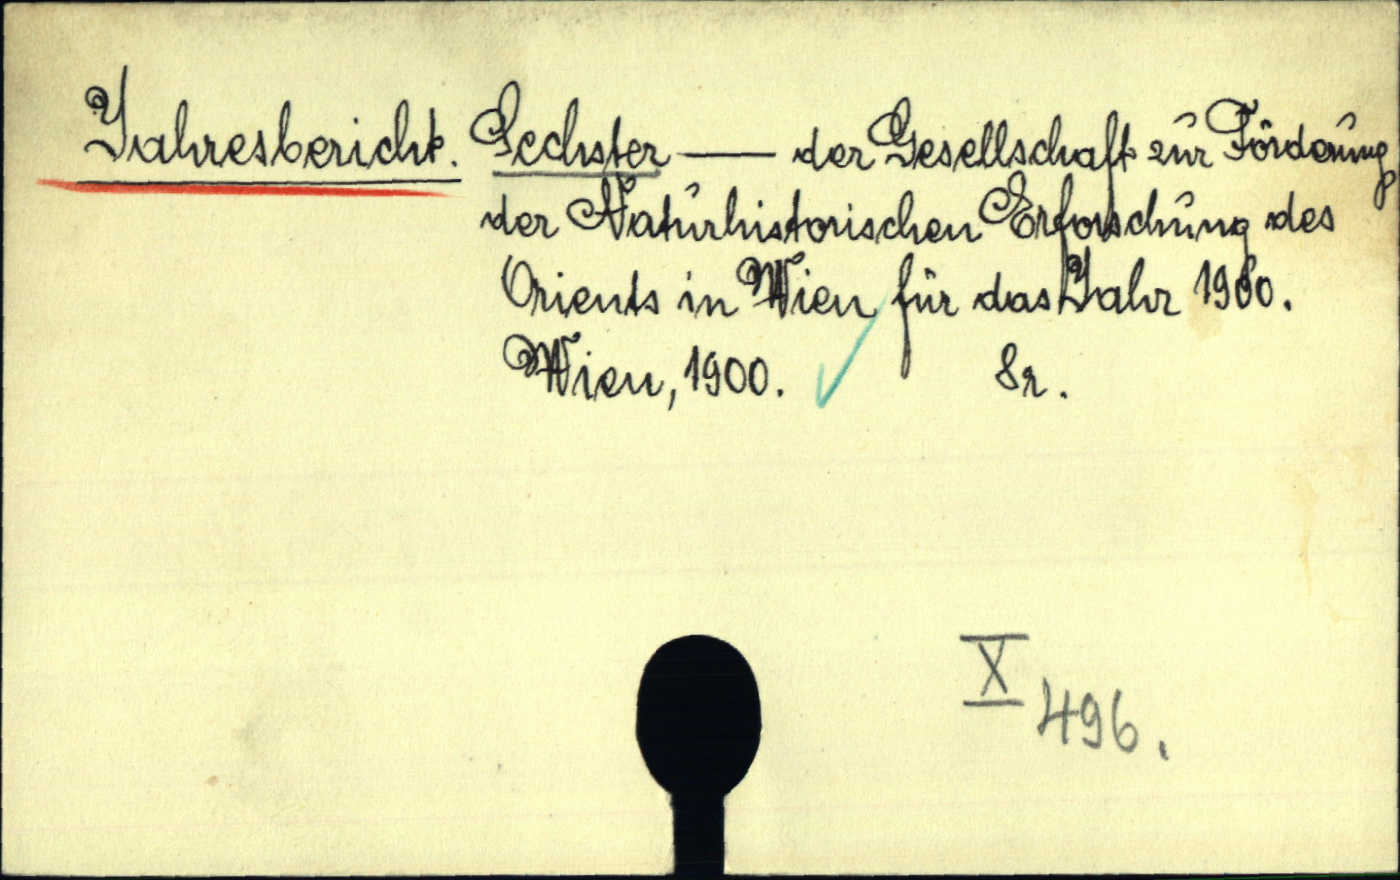 Jahresbericht. Sechster —— der Gesellschaft zur Förderung
der Naturhistorischen Erforschung des
Orients in Wien für das Jahr 1900.
Wien, 1900. 8r.
X 496.